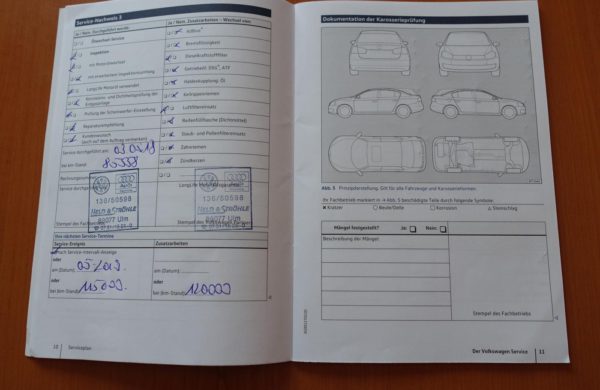 Service-Nachweis 3
Ja / Nein, Durchgeführt wurde:
Ölwechsel-Service
Inspektion
mit Motorölwechsel
mit erweitertem Inspektionsumfang
LongLife Motoröl verwendet
Karosserie- und Dichtheitsprüfung der
Erdgasanlage
Prüfung der Scheinwerfer-Einstellung
Reparaturempfehlung
Kundenwunsch
(auch auf dem Auftrag vermerken)
Service durchgeführt am:
bei km-Stand: 85558
Rechnungsnummer
Service durchgeführt
130/50598
Audi
Service
89077 Ulm
Stempel des Fachbetriebs
Ja / Nein, Zusatzarbeiten - Wechsel von:
AdBlue
Bremsflüssigkeit
Dieselkraftstofffilter
Getriebeöl: DSG, ATF
Haldexkupplung: Öl
Keilrippenriemen
Luftfiltereinsatz
Reifenfüllflasche (Dichtmittel)
Staub- und Pollenfiltereinsatz
Zahnriemen
Zündkerzen
130/50598
89077 Ulm
Stempel des Fachbetriebs
Ihre nächsten Service-Termine
Service-Ereignis
Zusatzarbeiten
nach Service-Intervall-Anzeige
oder
am (Datum):
oder
bei (km-Stand):
am (Datum):
oder
bei (km-Stand):
10 Serviceplan
Dokumentation der Karosserieprüfung
Abb. 5 Prinzipdarstellung. Gilt für alle Fahrzeuge und Karosserieformen.
Ihr Fachbetrieb markiert in Abb. 5 beschädigte Teile durch folgende Symbole:
× Kratzer ○ Beule/Delle □ Korrosion △ Steinschlag
Mängel festgestellt? Ja: Nein:
Beschreibung der Mängel:
Stempel des Fachbetriebs
Der Volkswagen Service 11